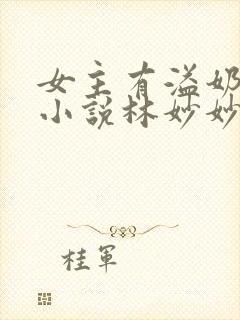 女主有溢奶
小说林妙妙
桂军